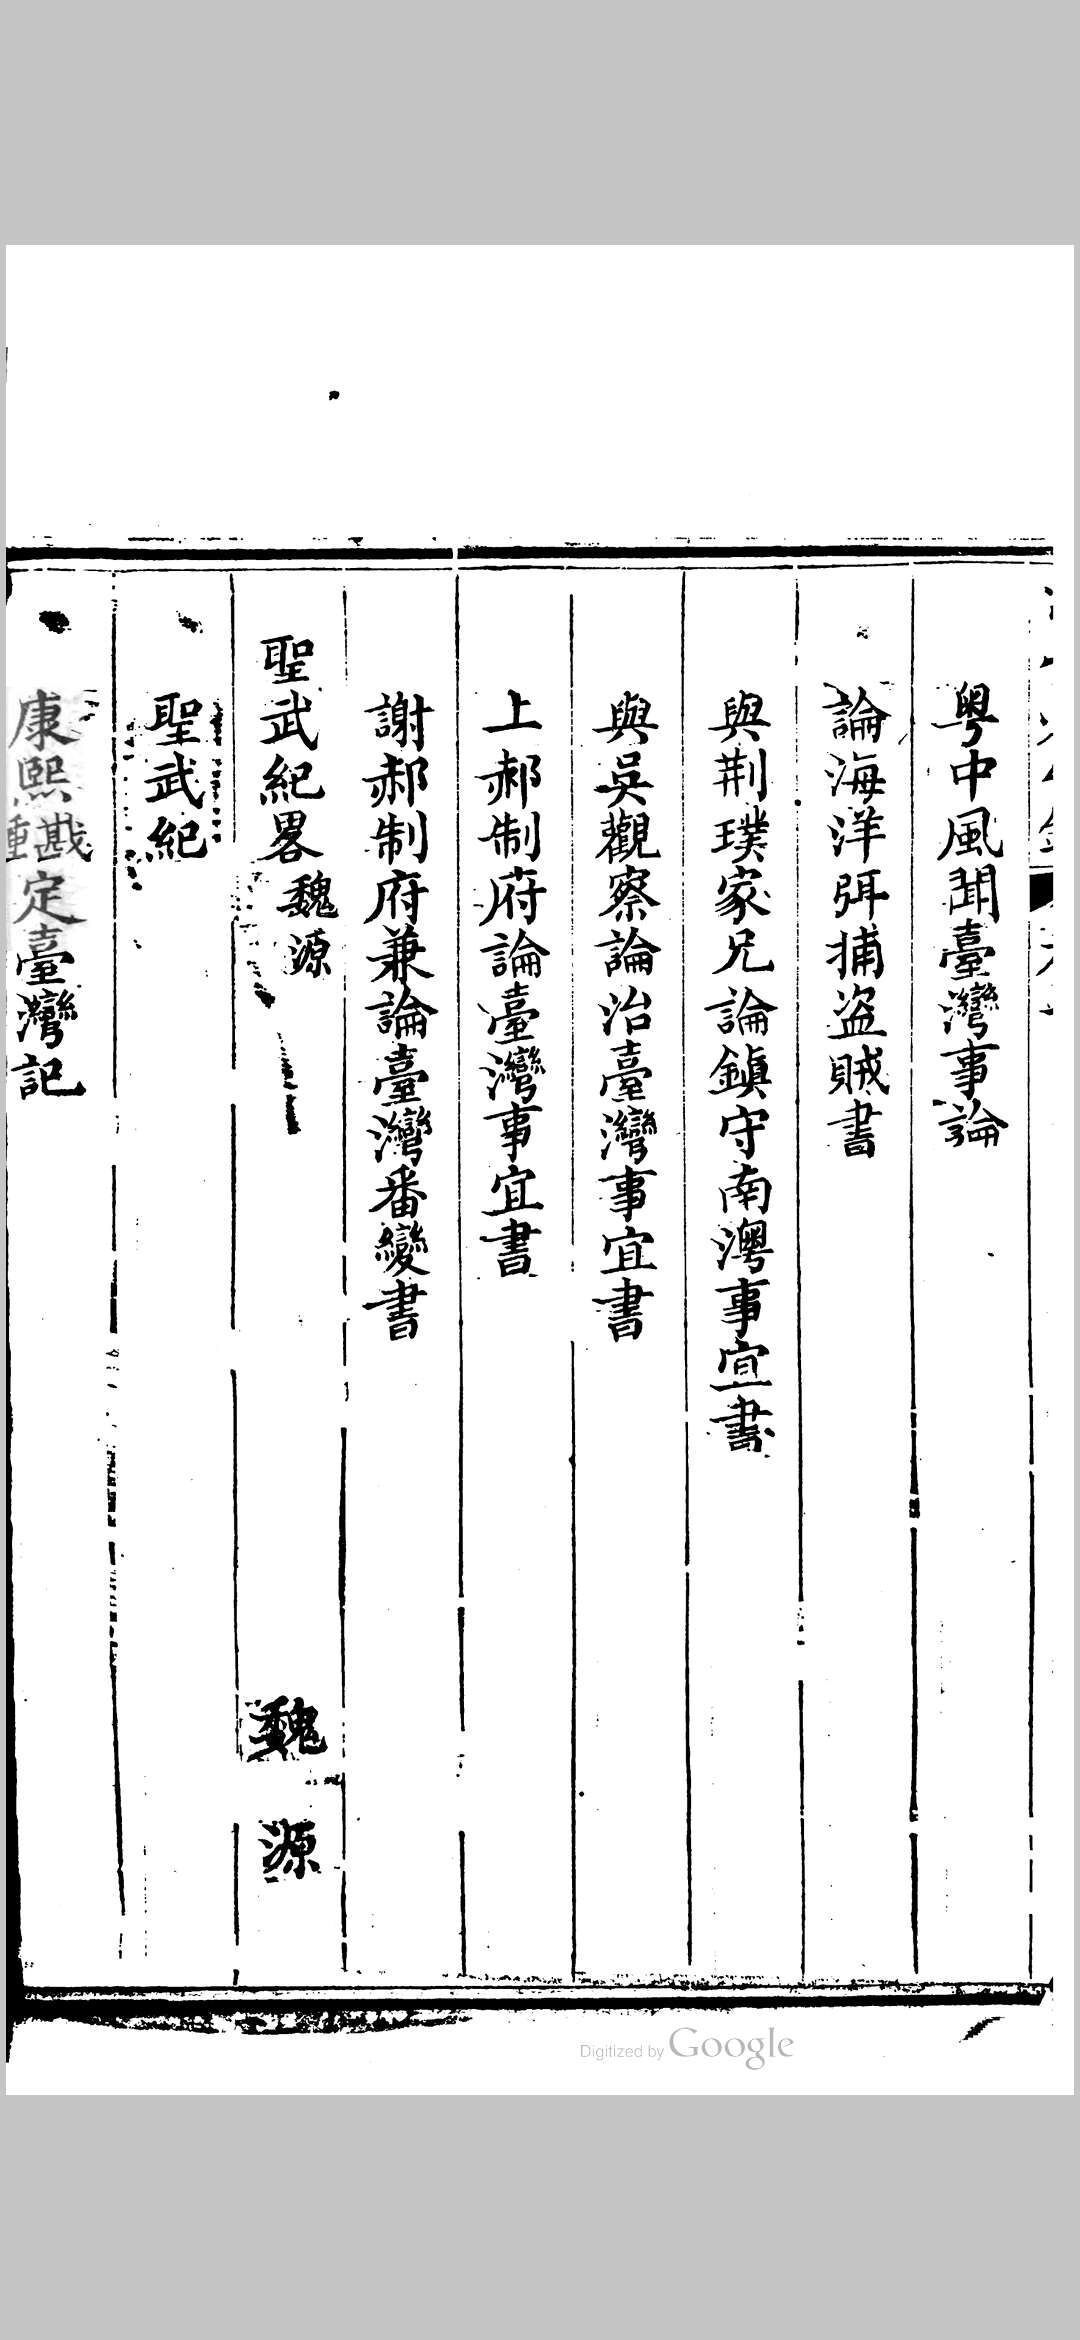 粤中風聞臺灣事論
論海洋弭捕盗賊書
與荆璞家兄論鎮守南澳事宜書
與吳觀察論治臺灣事宜書
上郝制府論臺灣事宜書
謝郝制府兼論臺灣番變書
聖武紀畧 魏源 魏源
聖武紀
康熙戡定臺灣記
Digitized by Google